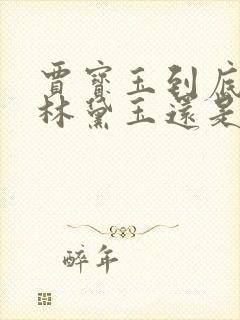 賈寶玉到底
林黛玉還是
醉年